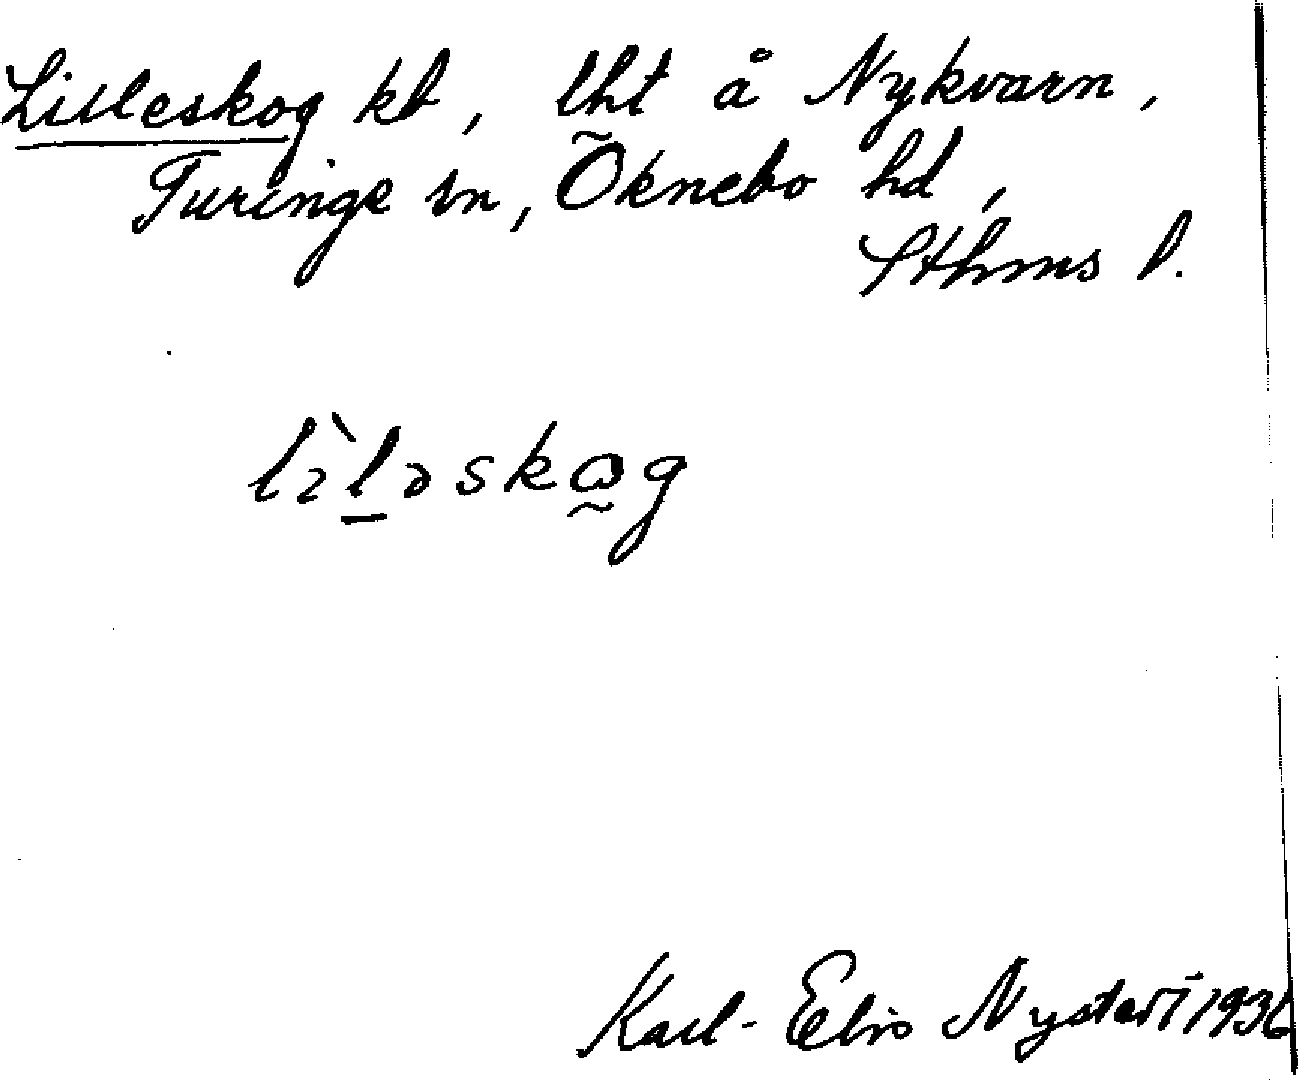 Lilleskog kb, lht å Nykvarn,
Turinge sn, Öknebo hd,
Sthms l.
lìləskɷg
Karl-Eric Nystedt 1936